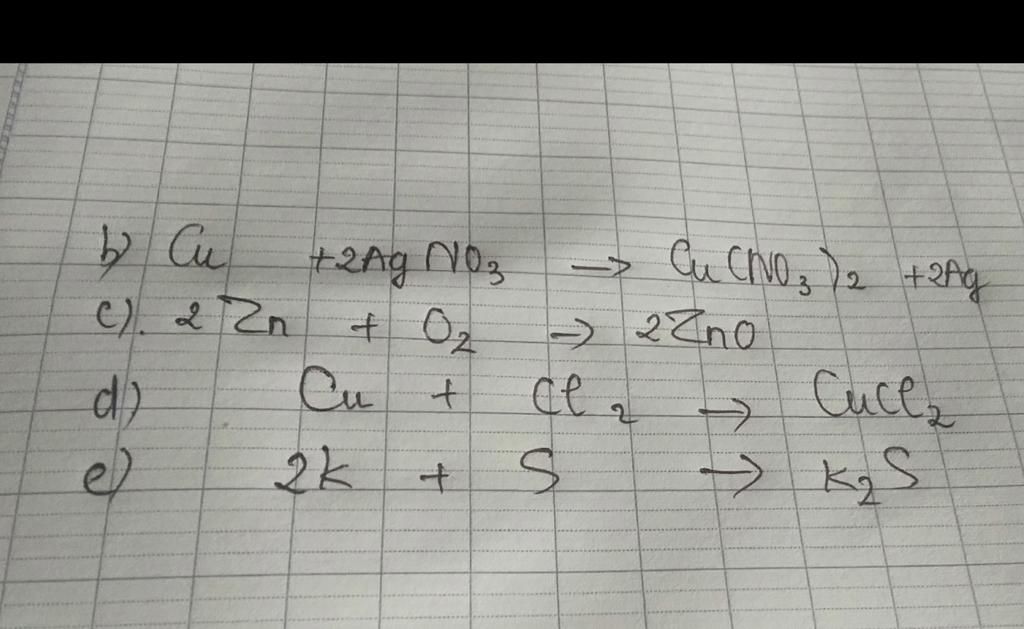 b) Cu +2Ag NO₃ → Cu (NO₃)₂ +2Ag
c). 2 Zn + O₂ → 2ZnO
d) Cu + Cl₂ → CuCl₂
e) 2K + S → K₂S